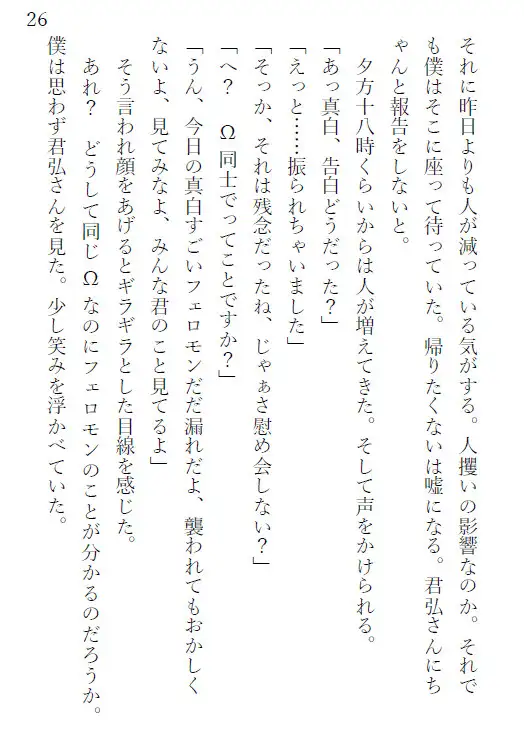 26
それに昨日よりも人が減っている気がする。人攫いの影響なのか。それで
も僕はそこに座って待っていた。帰りたくないは嘘になる。君弘さんにち
ゃんと報告をしないと。
　夕方十八時くらいからは人が増えてきた。そして声をかけられる。
「あっ真白、告白どうだった？」
「えっと……振られちゃいました」
「そっか、それは残念だったね、じゃぁさ慰め会しない？」
「へ？　Ω同士でってことですか？」
「うん、今日の真白すごいフェロモンだだ漏れだよ、襲われてもおかしく
ないよ、見てみなよ、みんな君のこと見てるよ」
　そう言われ顔をあげるとギラギラとした目線を感じた。
　あれ？　どうして同じΩなのにフェロモンのことが分かるのだろうか。
僕は思わず君弘さんを見た。少し笑みを浮かべていた。